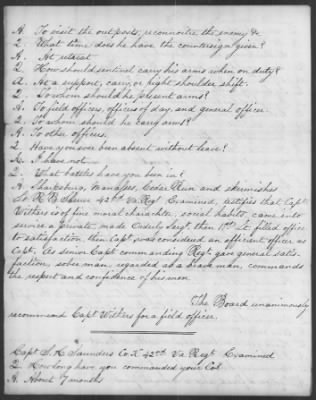 A. To visit the out posts, reconnoitre the enemy &c
Q. What time does he have the countersign given?
A. At retreat
Q. How should sentinel carry his arms when on duty?
A. At a support, carry, or right shoulder shift.
Q. To whom should he present arms?
A. To field officers, officers of day, and general officer
Q. To whom should he carry arms?
A. To other officers.
Q. Have you ever been absent without leave?
A. I have not
Q. What battles have you been in?
A. Sharpsburg, Manassas, Cedar Run and skirmishes
Lt R. B. 42d Va Regt Examined, testifies that Capt
Withers is of fine moral character, social habits, came into
service a private, made Orderly Sergt. then 1st Lt. filled office
to satisfaction, then Capt was considered an efficient officer as
Capt. As senior Capt commanding Regt gave general satis-
faction, sober man, regarded as a brave man, commands
the respect and confidence of his men
The Board unanimously
recommend Capt Withers for a field officer.
Capt S. H. Saunders Co. K 42nd Va Regt Examined
Q. How long have you commanded your Co?
A. About 7 months